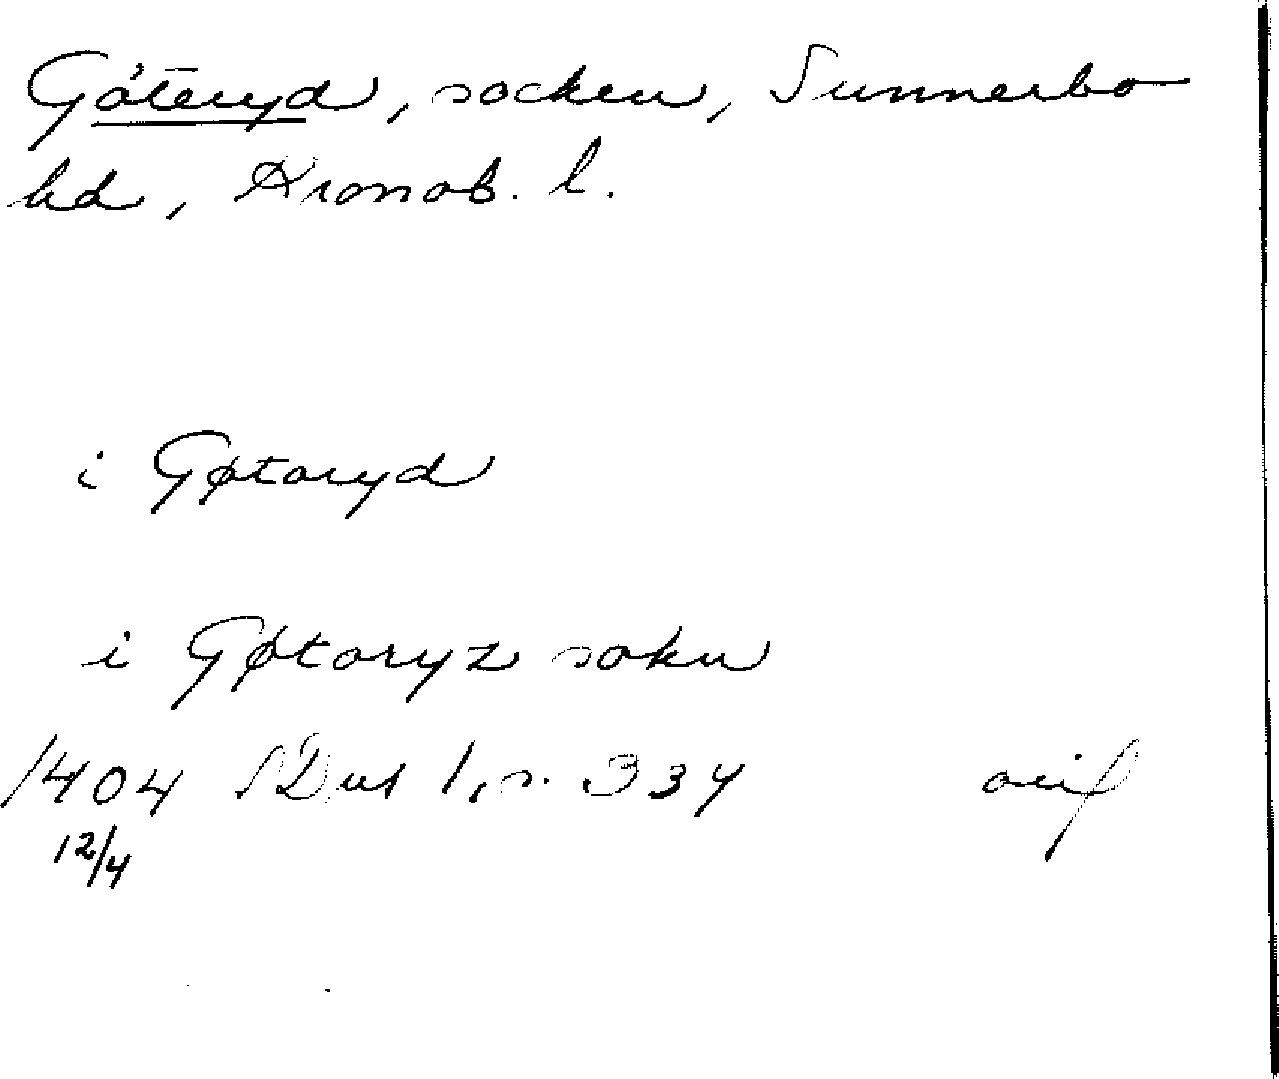 Göteryd, socken, Sunnerbo
hd, Kronob. l.
i Gøtaryd
i Gøtoryz sokn
1404 SDns 1, s. 334 orig
12/4